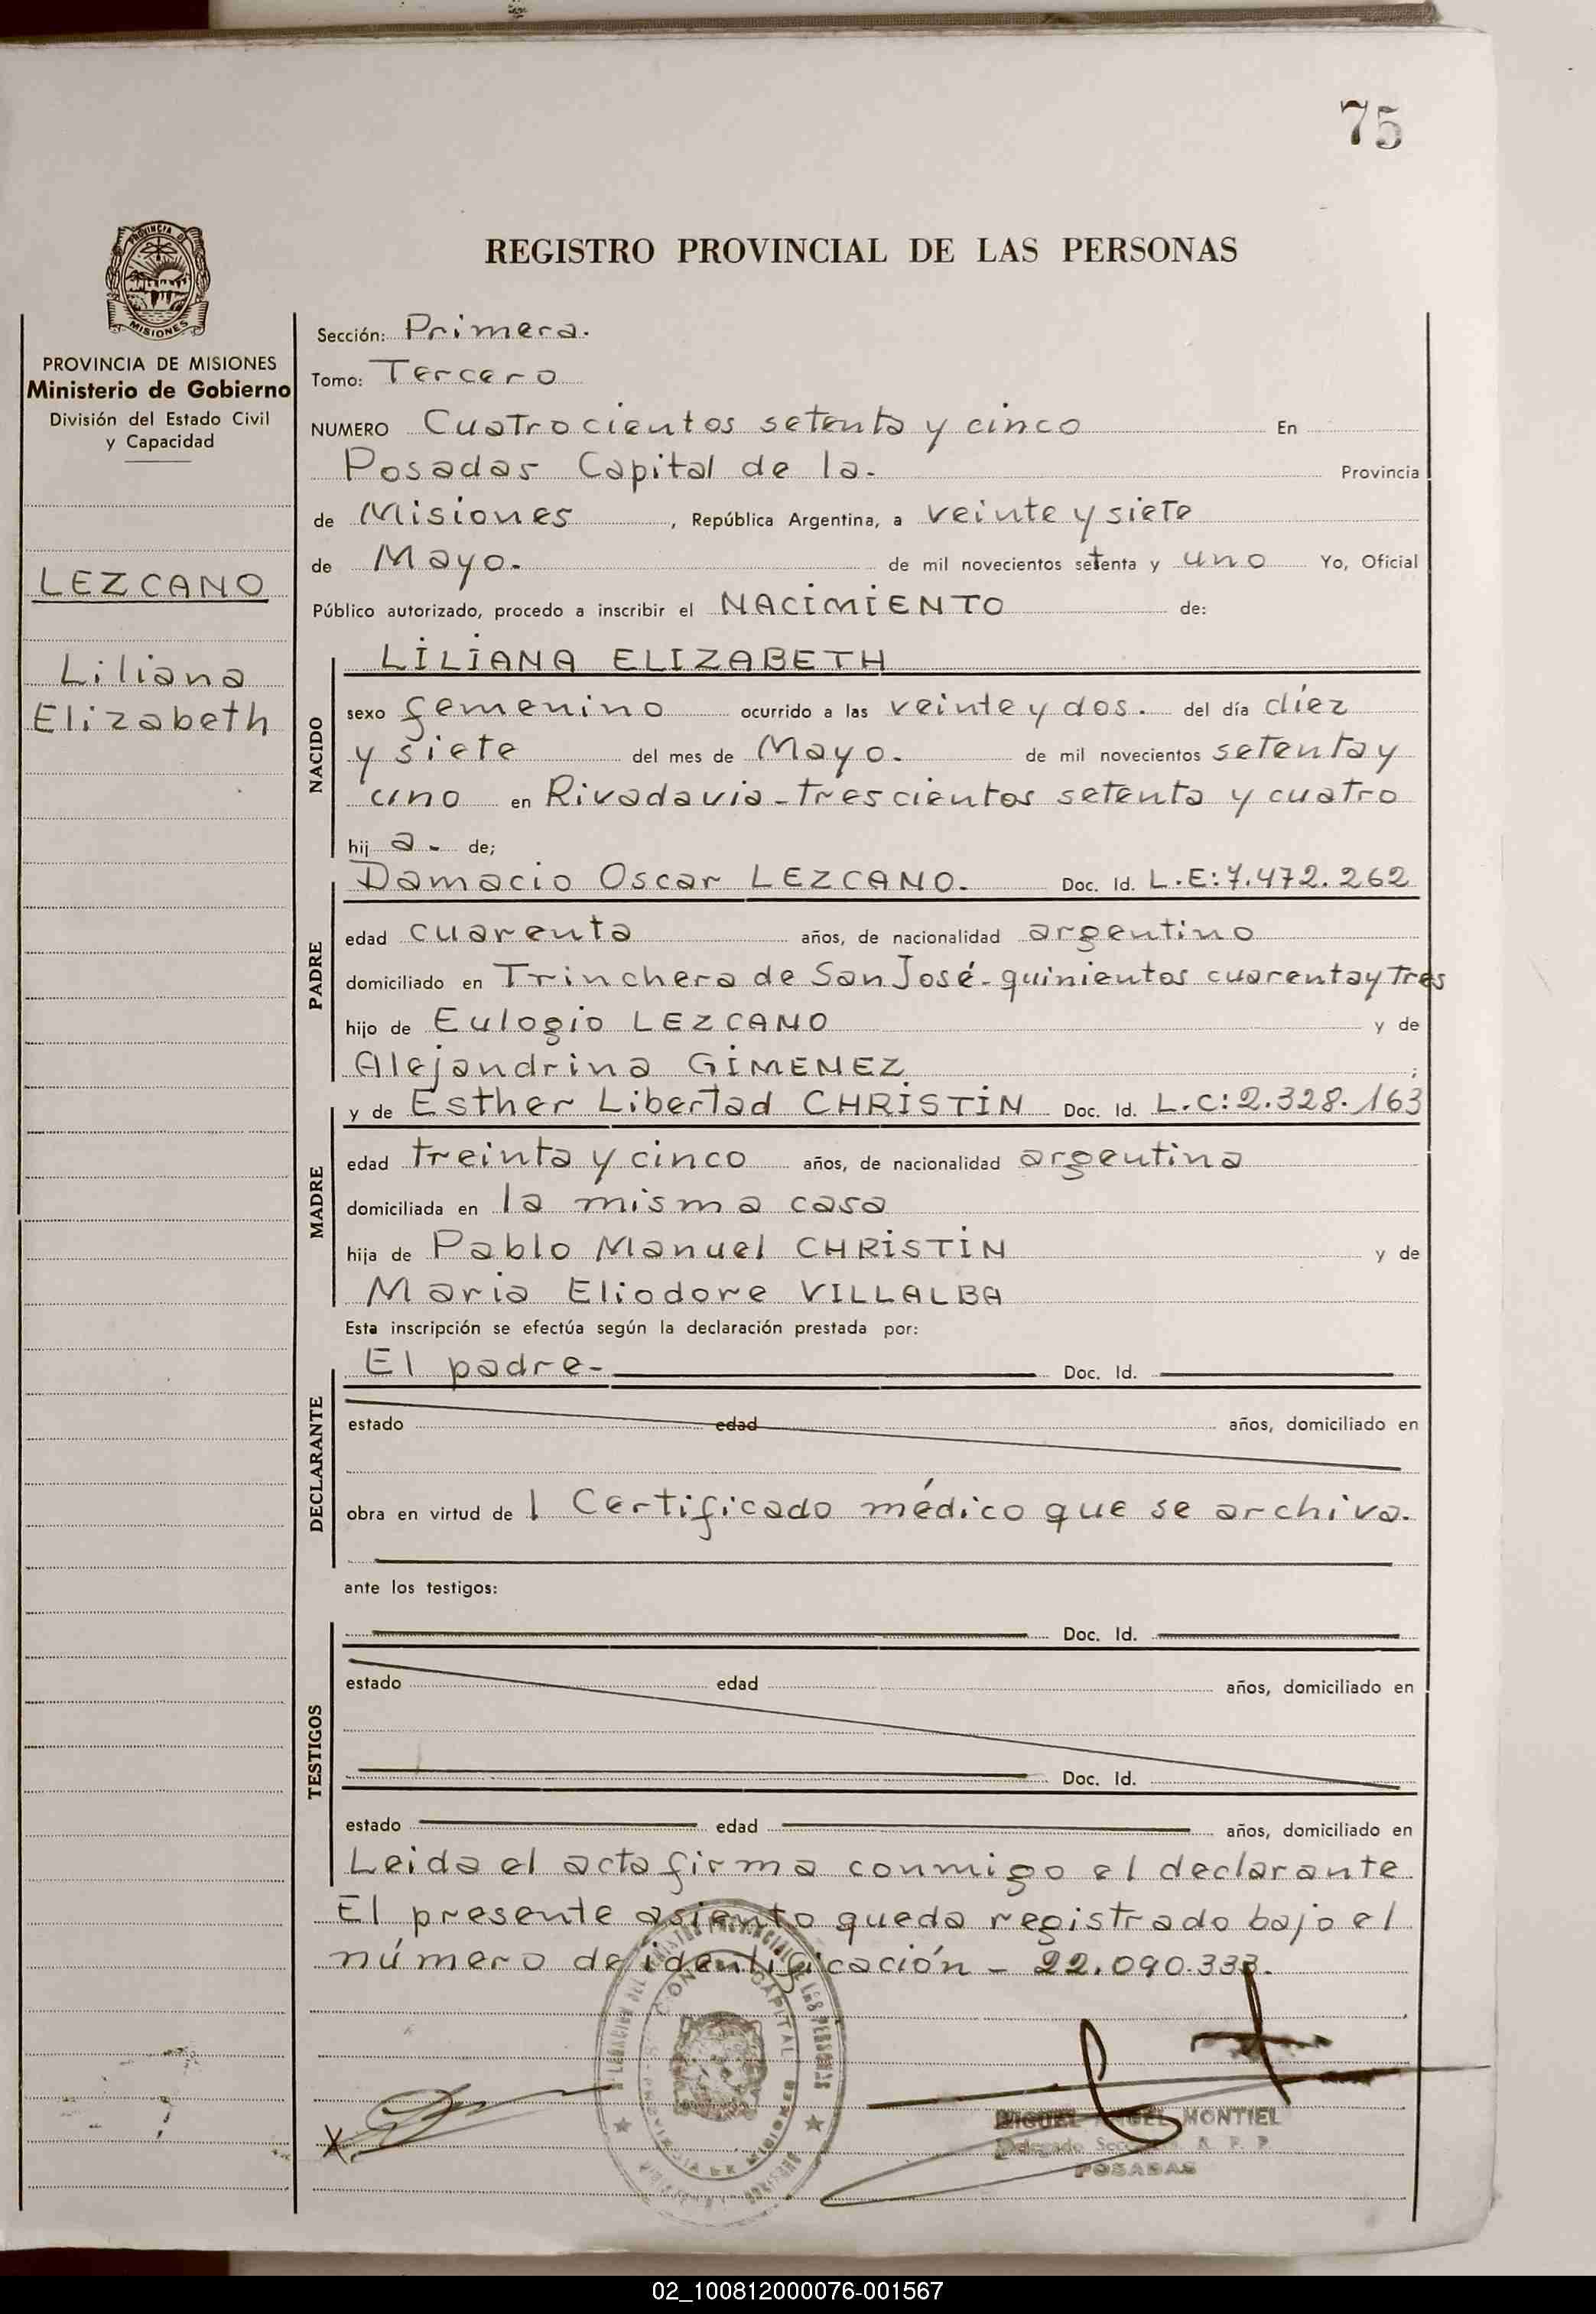 75
REGISTRO PROVINCIAL DE LAS PERSONAS
PROVINCIA DE
MISIONES
PROVINCIA DE MISIONES
Ministerio de Gobierno
División del Estado Civil
y Capacidad
LEZCANO
Liliana
Elizabeth
Sección: Primera.
Tomo: Tercero
NUMERO Cuatrocientos setenta y cinco En
Posadas Capital de la. Provincia
de Misiones, República Argentina, a veinte y siete
de Mayo. de mil novecientos setenta y uno Yo, Oficial
Público autorizado, procedo a inscribir el NACIMIENTO de:
NACIDO
LILIANA ELIZABETH
sexo femenino ocurrido a las veinte y dos. del día diez
y siete del mes de Mayo. de mil novecientos setenta y
uno en Rivadavia-trescientos setenta y cuatro
hij a. de;
PADRE
Damacio Oscar LEZCANO. Doc. Id. L.E:7.472.262
edad cuarenta años, de nacionalidad argentino
domiciliado en Trinchera de San José-quinientos cuarenta y Tres
hijo de Eulogio LEZCANO y de
Alejandrina GIMENEZ ;
MADRE
y de Esther Libertad CHRISTIN Doc. Id. L.C:2.328.163
edad treinta y cinco años, de nacionalidad argentina
domiciliada en la misma casa
hija de Pablo Manuel CHRISTIN y de
Maria Eliodore VILLALBA
Esta inscripción se efectúa según la declaración prestada por:
DECLARANTE
El padre- Doc. Id.
estado edad años, domiciliado en
obra en virtud de 1 Certificado médico que se archiva.
ante los testigos:
TESTIGOS
Doc. Id.
estado edad años, domiciliado en
Doc. Id.
estado edad años, domiciliado en
Leida el acta firma conmigo el declarante
El presente asiento queda registrado bajo el
número de identificación - 22.090.333.
CAPITAL
MIGUEL ANGEL MONTIEL
Delegado R. P. P.
POSADAS
02_100812000076-001567